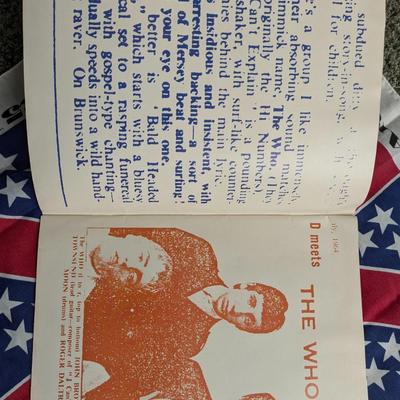 subdued ditty, a thought
story-in-song, with
for children.
e's a group I like immensely
heir absorbing sound matches
immick name, The Who. (They
originally the Hi Numbers).
Can't Explain" is a pounding
shaker, with surf-like counter-
nies behind the main lyric.
s insidious and insistent, with
arresting backing—a sort of
d of Mersey beat and surfing!
your eye on this one.
better is "Bald Headed
," which starts with a bluesy
ical set to a rasping funereal
with gospel-type chanting—
dually speeds into a wild hand-
raver. On Brunswick.
uly, 1964
D meets
THE WHO
The WHO (l to r, top to bottom) JOHN BRO
TOWNSEND (lead guitar—composer of "I Can
MOON (drums) and ROGER DALTR